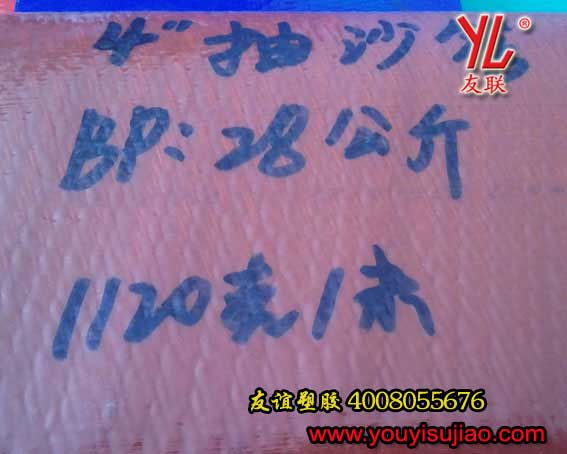 4"抽沙管
YL®
友联
BP:28公斤
1120克1米
友谊塑胶 4008055676
www.youyisujiao.com